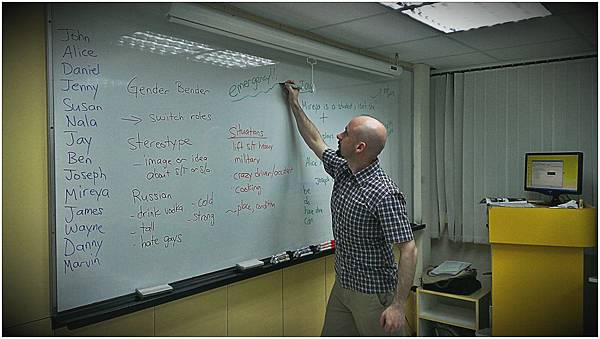 John
Alice
Daniel
Jenny
Susan
Nala
Jay
Ben
Joseph
Mireya
James
Wayne
Danny
Marvin
Gender Bender
→ switch roles
Stereotype
- image or idea
about s/t or s/o
Russian
- drink vodka
- tall
- hate gays
- cold
- strong
emergency!!
Situations
lift s/t heavy
military
crazy driver/accident
cooking
place, condition
Mireya is a student, isn't she
+
Alice
Joseph
be
do
have done
can